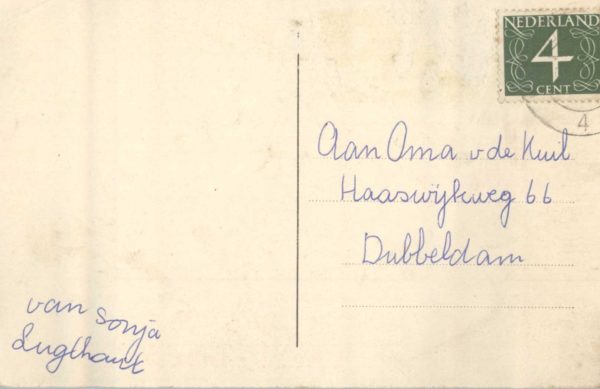 NEDERLAND
4
CENT
4
Aan Oma v de Kuil
Haaswijkweg 66
Dubbeldam
van Sonja